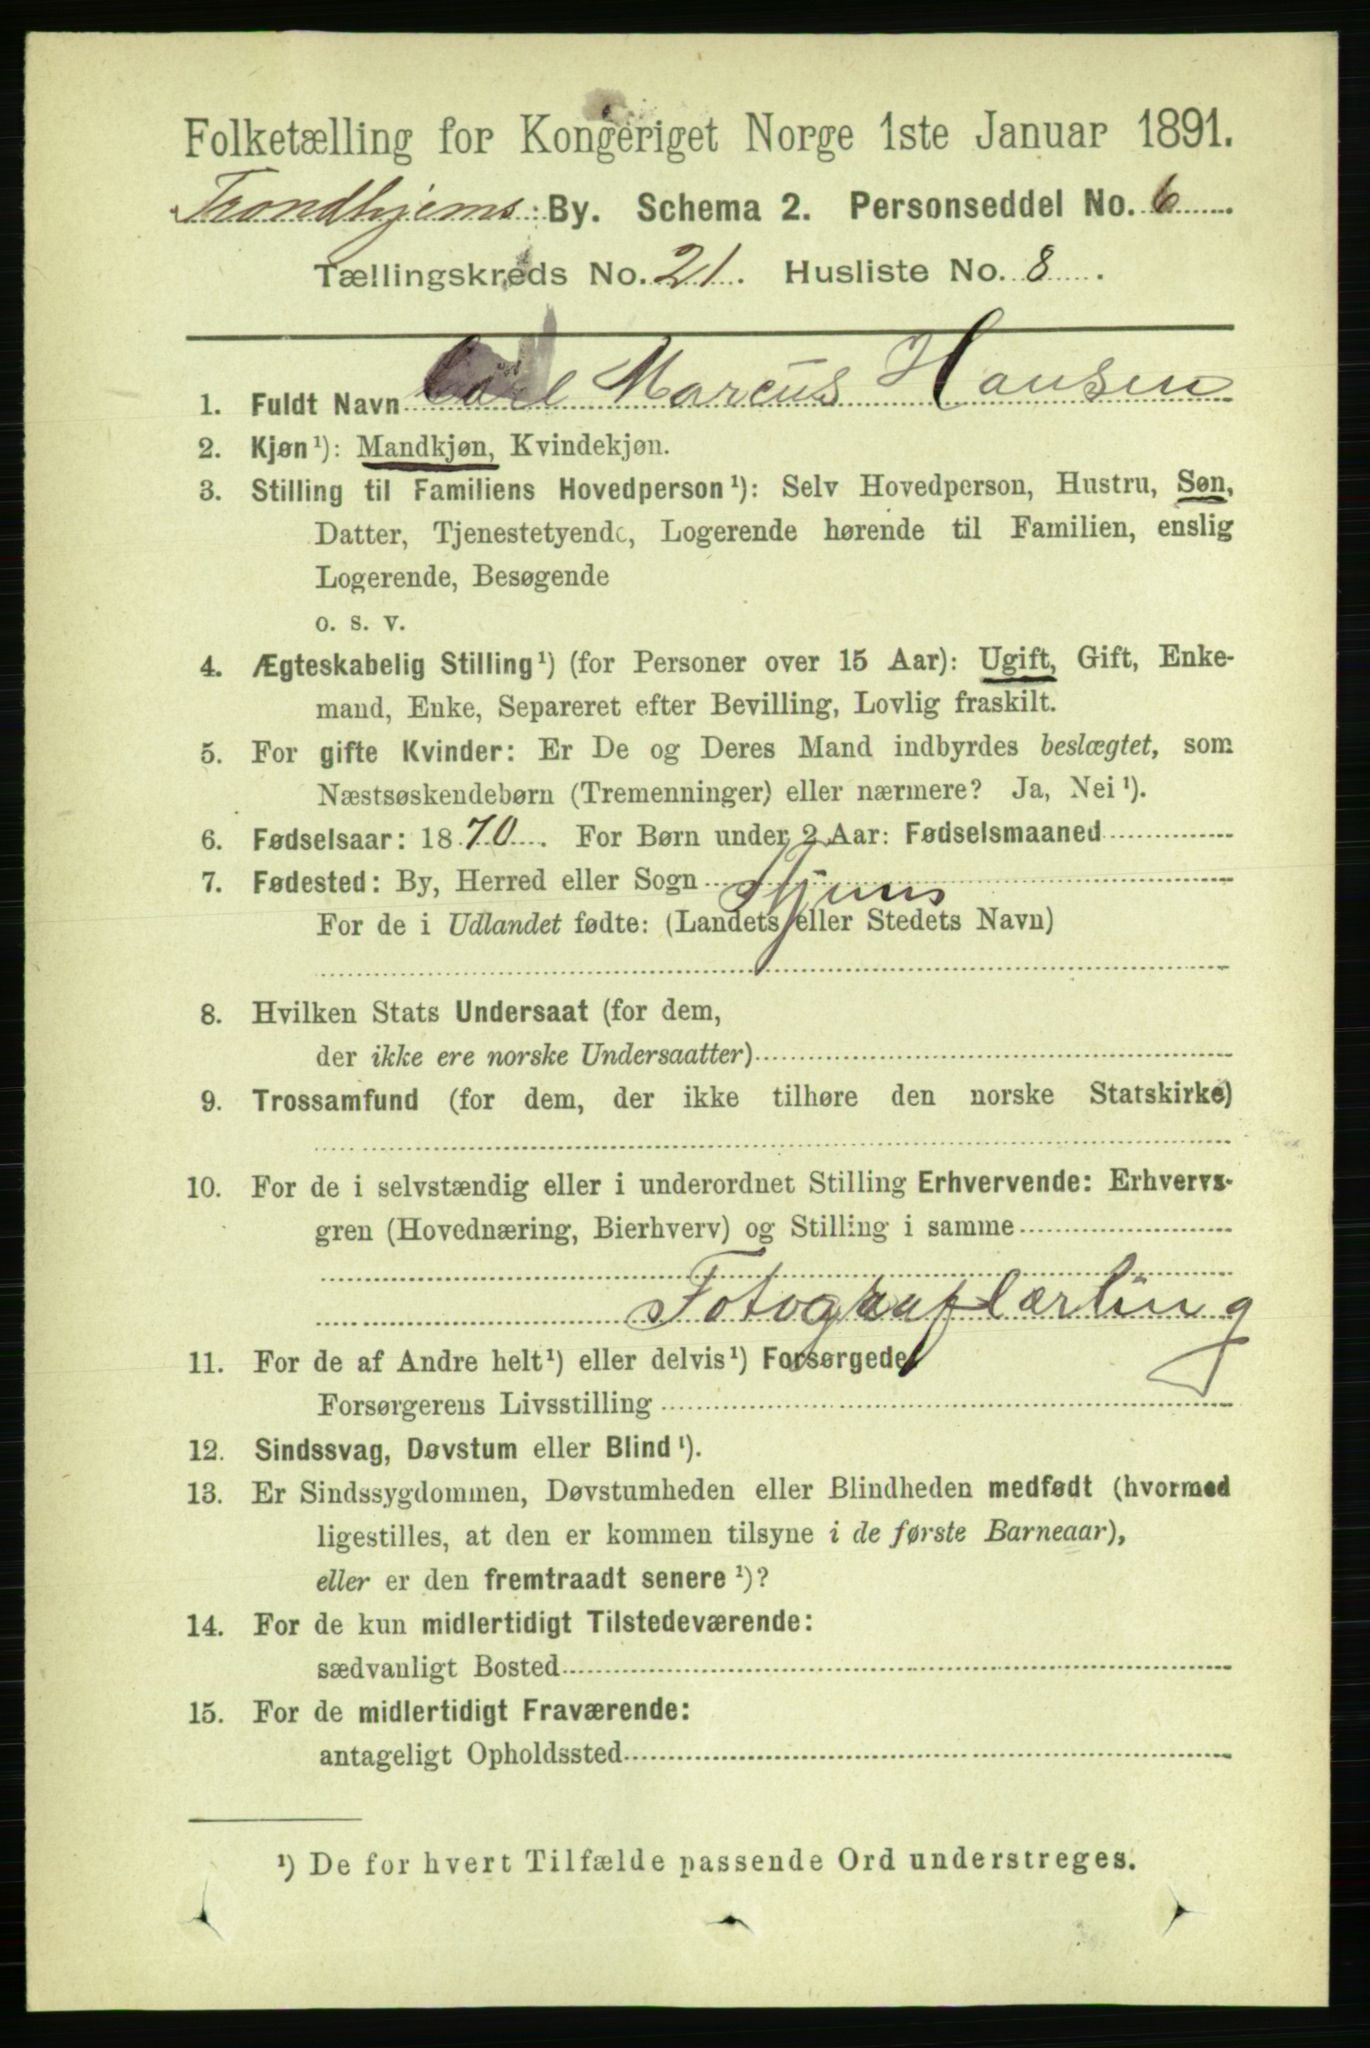 Folketælling for Kongeriget Norge 1ste Januar 1891.
Trondhjems By. Schema 2. Personseddel No. 6
Tællingskreds No. 21. Husliste No. 8.
1. Fuldt Navn Carl Marcus Hansen
2. Kjøn¹): Mandkjøn, Kvindekjøn.
3. Stilling til Familiens Hovedperson¹): Selv Hovedperson, Hustru, Søn,
Datter, Tjenestetyende, Logerende hørende til Familien, enslig
Logerende, Besøgende
o. s. v.
4. Ægteskabelig Stilling¹) (for Personer over 15 Aar): Ugift, Gift, Enke-
mand, Enke, Separeret efter Bevilling, Lovlig fraskilt.
5. For gifte Kvinder: Er De og Deres Mand indbyrdes beslægtet, som
Næstsøskendebørn (Tremenninger) eller nærmere? Ja, Nei¹).
6. Fødselsaar: 1870. For Børn under 2 Aar: Fødselsmaaned
7. Fødested: By, Herred eller Sogn
For de i Udlandet fødte: (Landets eller Stedets Navn)
8. Hvilken Stats Undersaat (for dem,
der ikke ere norske Undersaatter)
9. Trossamfund (for dem, der ikke tilhøre den norske Statskirke)
10. For de i selvstændig eller i underordnet Stilling Erhvervende: Erhvervs-
gren (Hovednæring, Bierhverv) og Stilling i samme
Fotograflærling
11. For de af Andre helt¹) eller delvis¹) Forsørgede
Forsørgerens Livsstilling
12. Sindssvag, Døvstum eller Blind¹).
13. Er Sindssygdommen, Døvstumheden eller Blindheden medfødt (hvormed
ligestilles, at den er kommen tilsyne i de første Barneaar),
eller er den fremtraadt senere¹)?
14. For de kun midlertidigt Tilstedeværende:
sædvanligt Bosted
15. For de midlertidigt Fraværende:
antageligt Opholdssted
¹) De for hvert Tilfælde passende Ord understreges.